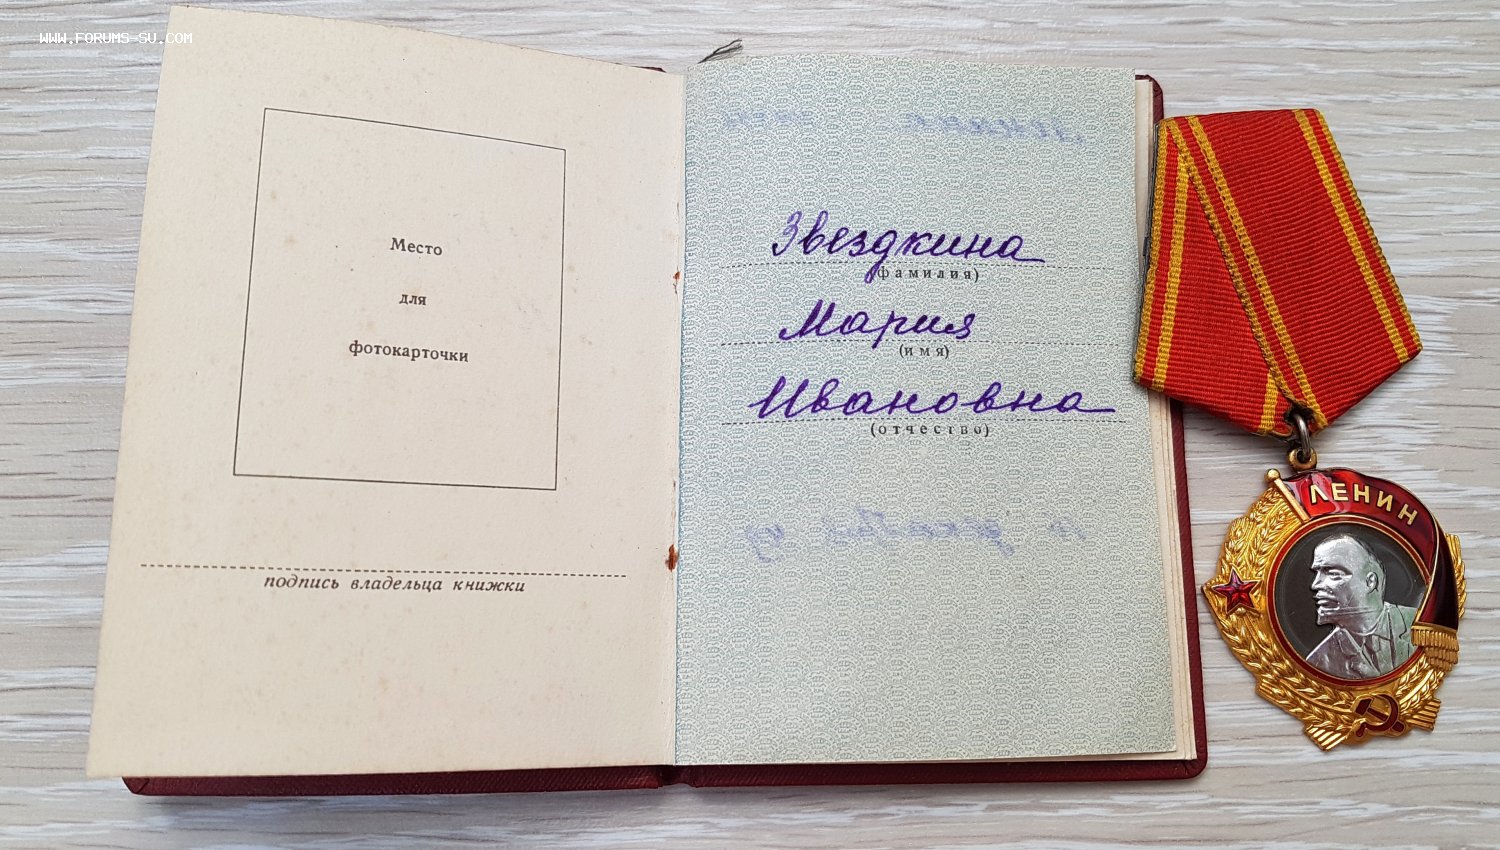 WWW.FORUMS-SU.COM
Место
для
фотокарточки
подпись владельца книжки
Звездкина
(фамилия)
Мария
(имя)
Ивановна
(отчество)
ЛЕНИН